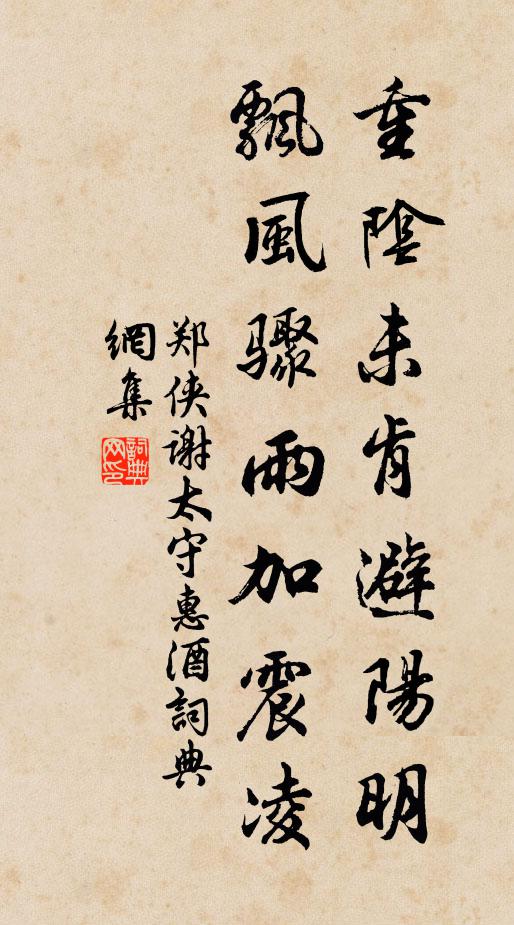 重陰未肯避陽明
飄風驟雨加震凌
郑侠谢太守惠酒詞典
網集
詞典
网印